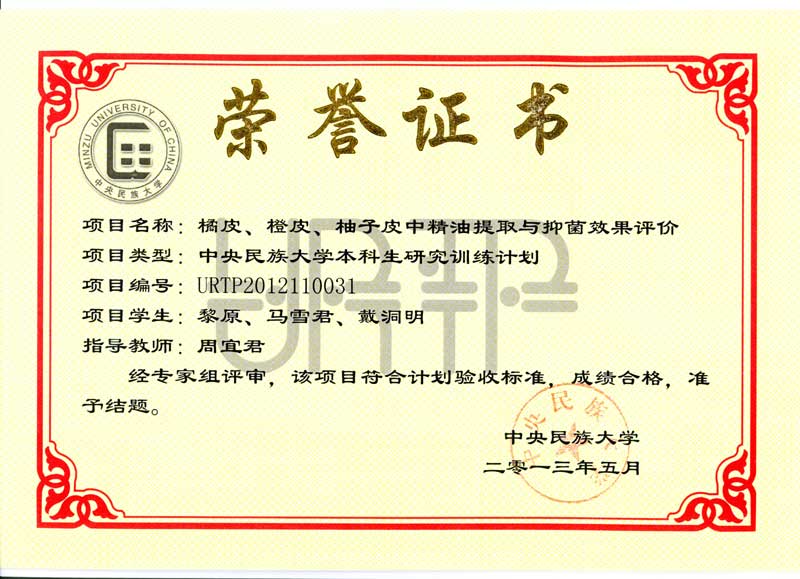 荣誉证书
MINZU UNIVERSITY OF CHINA
中央民族大学
项目名称：橘皮、橙皮、柚子皮中精油提取与抑菌效果评价
项目类型：中央民族大学本科生研究训练计划
项目编号：URTP2012110031
项目学生：黎原、马雪君、戴洞明
指导教师：周宜君
经专家组评审，该项目符合计划验收标准，成绩合格，准
予结题。
URTP
中央民族大学
中央民族大学
二零一三年五月